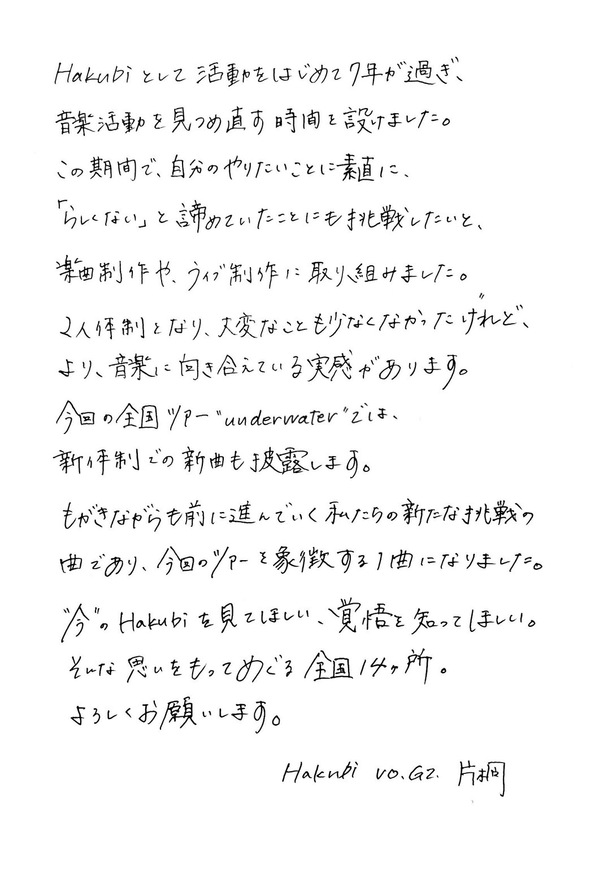 Hakubiとして活動をはじめて7年が過ぎ、
音楽活動を見つめ直す時間を設けました。
この期間で、自分のやりたいことに素直に、
「らしくない」と諦めていたことにも挑戦したいと、
楽曲制作や、ライブ制作に取り組みました。
2人体制となり、大変なことも少なくなかったけれど、
より、音楽に向き合えている実感があります。
今回の全国ツアー"underwater"では、
新体制での新曲も披露します。
もがきながらも前に進んでいく私たちの新たな挑戦の
曲であり、今回のツアーを象徴する1曲になりました。
"今"のHakubiを見てほしい、覚悟を知ってほしい。
そんな思いをもってめぐる全国14ヶ所。
よろしくお願いします。
Hakubi vo.Gt. 片桐